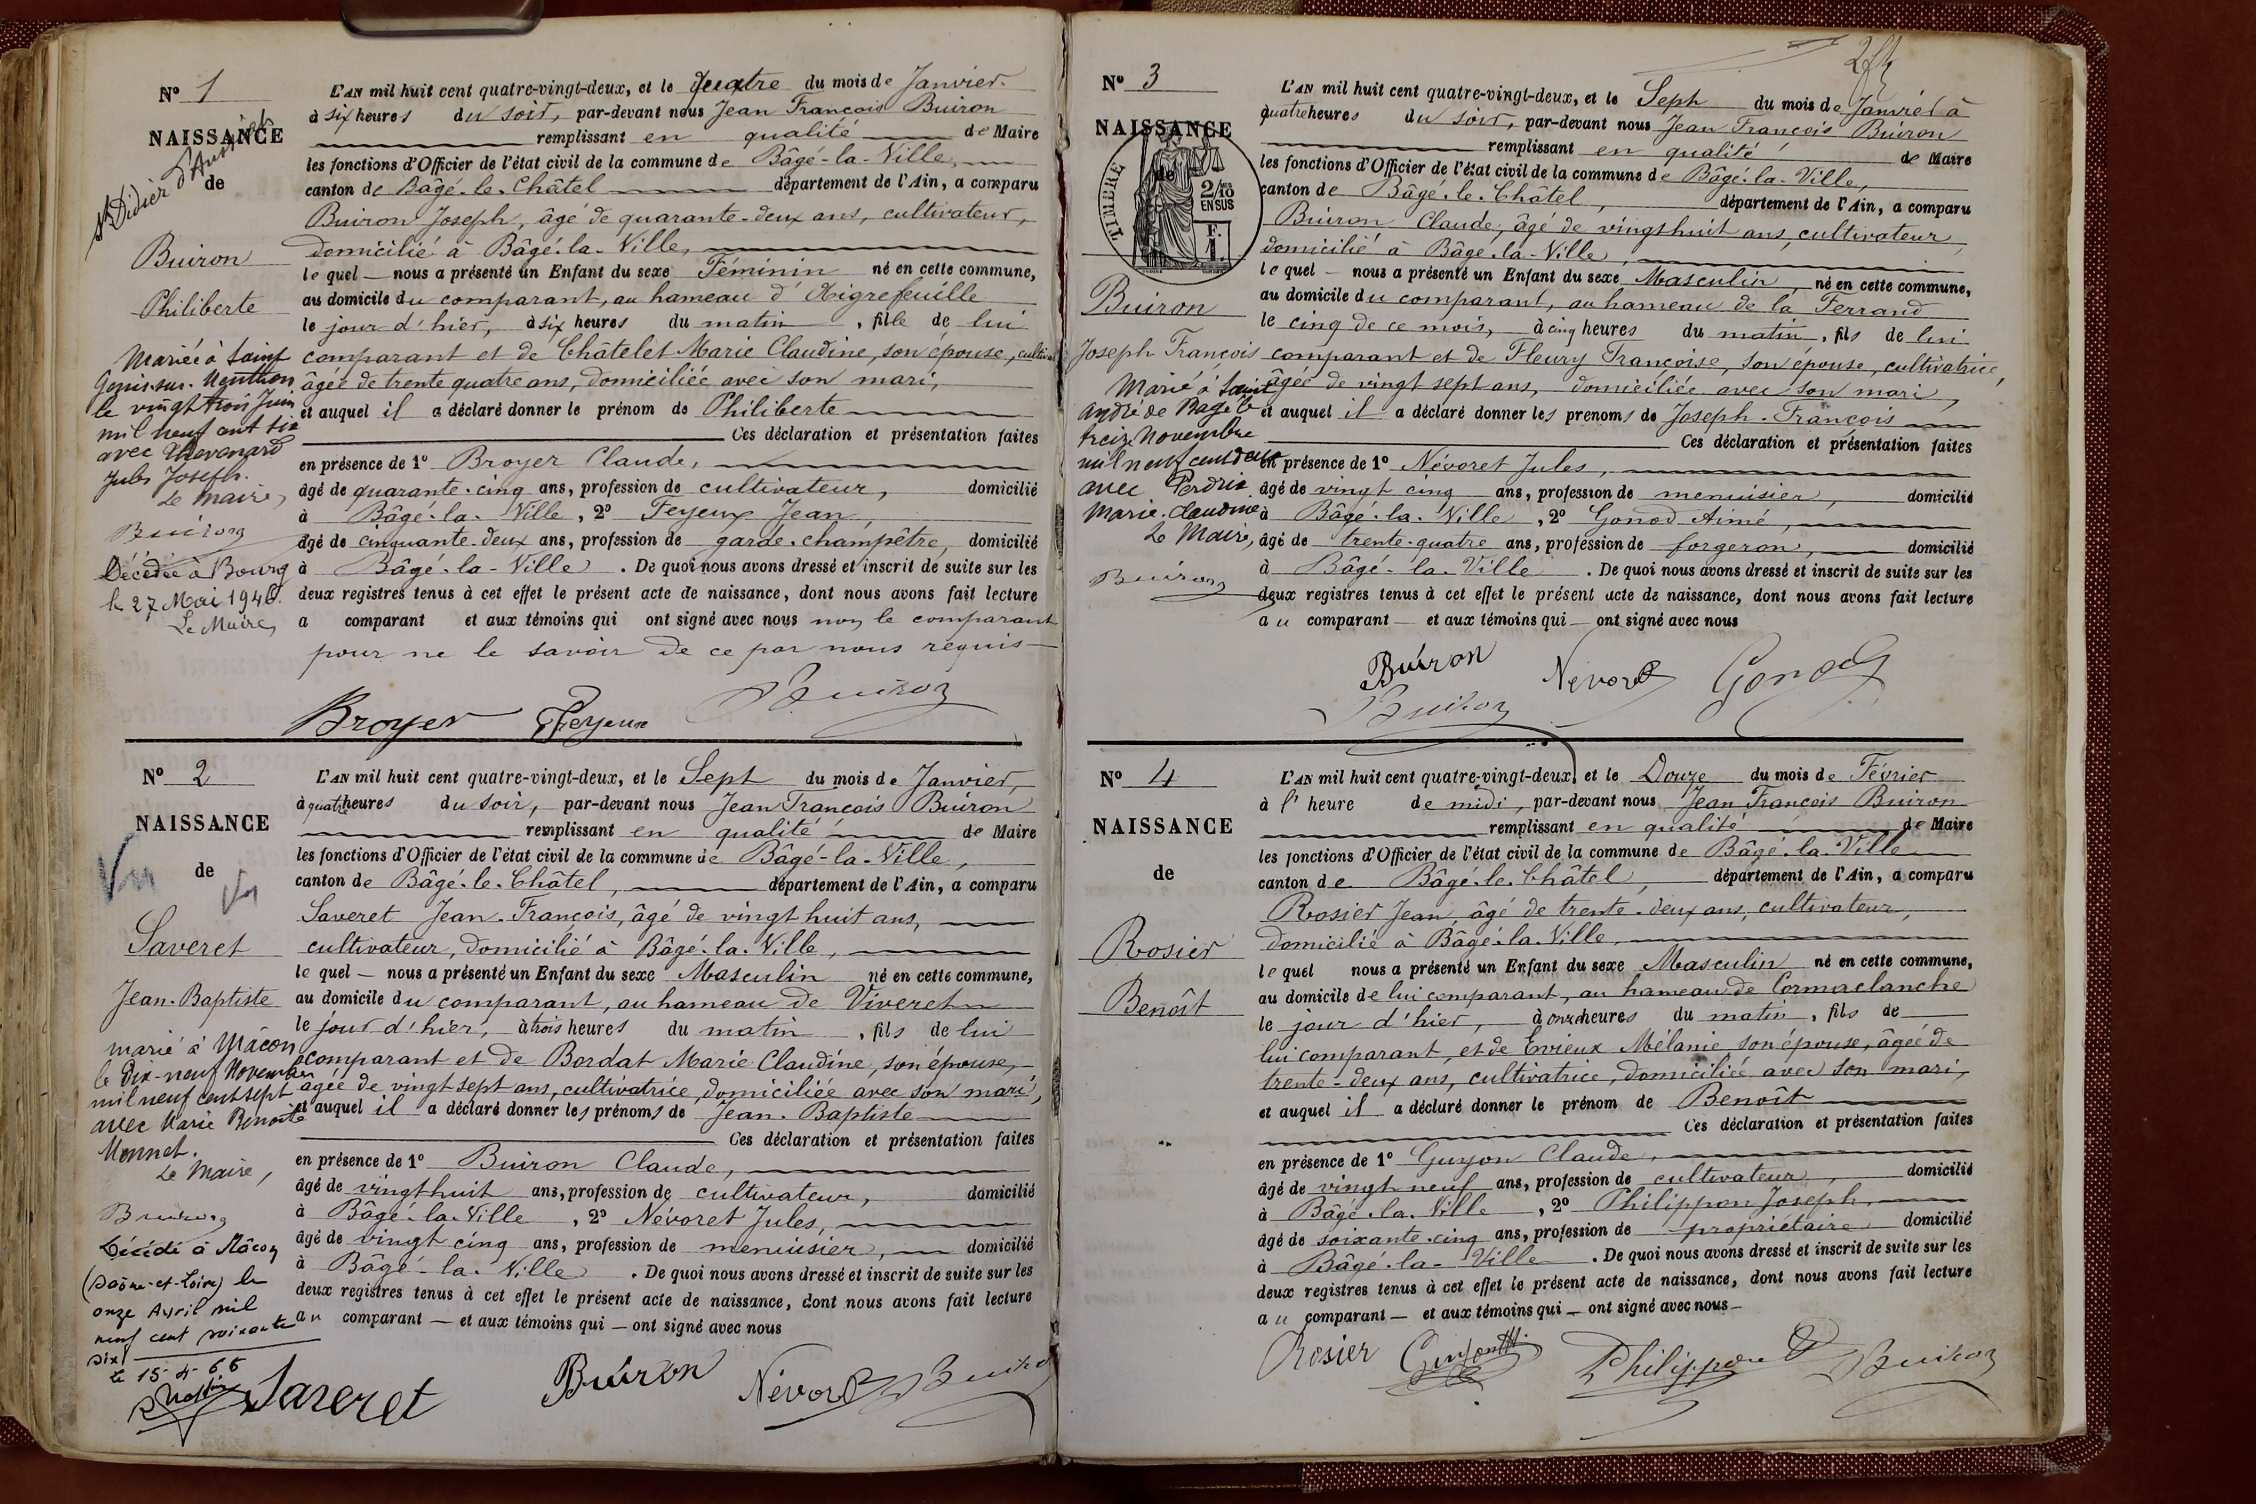 N° 1
NAISSANCE
de
St Didier d'Aussiat
Buiron
Philiberte
Mariée à Saint
Genis-sur-Menthon
le vingt trois Juin
mil neuf cent six
avec Thevenard
Jules Joseph.
Le Maire,
Buiron
Décédée à Bourg
le 27 Mai 1946.
Le Maire,
L'AN mil huit cent quatre-vingt-deux, et le quatre du mois de Janvier
à six heures du soir, par-devant nous Jean François Buiron
remplissant en qualité de Maire
les fonctions d'Officier de l'état civil de la commune de Bâgé-la-Ville,
canton de Bâgé-le-Châtel département de l'Ain, a comparu
Buiron Joseph, âgé de quarante-deux ans, cultivateur,
domicilié à Bâgé-la-Ville,
lequel nous a présenté un Enfant du sexe Féminin né en cette commune,
au domicile du comparant, au hameau d'Aigrefeuille
le jour d'hier, à six heures du matin, fille de lui
comparant et de Châtelet Marie Claudine, son épouse,
âgée de trente quatre ans, domiciliée avec son mari,
et auquel il a déclaré donner le prénom de Philiberte
Ces déclaration et présentation faites
en présence de 1° Broyer Claude,
âgé de quarante-cinq ans, profession de cultivateur, domicilié
à Bâgé-la-Ville, 2° Feyeux Jean,
âgé de cinquante-deux ans, profession de garde-champêtre, domicilié
à Bâgé-la-Ville. De quoi nous avons dressé et inscrit de suite sur les
deux registres tenus à cet effet le présent acte de naissance, dont nous avons fait lecture
a comparant et aux témoins qui ont signé avec nous non le comparant
pour ne le savoir de ce par nous requis
Broyer Feyeux Buiron
N° 2
NAISSANCE
de
Vu
Saveret
Jean-Baptiste
marié à Mâcon
le dix-neuf Novembre
mil neuf cent sept
avec Marie Benoîte
Monnet.
Le Maire,
Buiron
Décédé à Mâcon
(Saône-et-Loire) le
onze Avril mil
neuf cent soixante
six
le 15-4-66
L'AN mil huit cent quatre-vingt-deux, et le Sept du mois de Janvier,
à quatre heures du soir, par-devant nous Jean François Buiron
remplissant en qualité de Maire
les fonctions d'Officier de l'état civil de la commune de Bâgé-la-Ville,
canton de Bâgé-le-Châtel, département de l'Ain, a comparu
Saveret Jean-François, âgé de vingt huit ans,
cultivateur, domicilié à Bâgé-la-Ville,
lequel nous a présenté un Enfant du sexe Masculin né en cette commune,
au domicile du comparant, au hameau de Viveret
le jour d'hier, à trois heures du matin, fils de lui
comparant et de Bordat Marie Claudine, son épouse,
âgée de vingt sept ans, cultivatrice, domiciliée avec son mari,
et auquel il a déclaré donner les prénoms de Jean-Baptiste
Ces déclaration et présentation faites
en présence de 1° Buiron Claude,
âgé de vingt huit ans, profession de cultivateur, domicilié
à Bâgé-la-Ville, 2° Névoret Jules,
âgé de vingt cinq ans, profession de menuisier, domicilié
à Bâgé-la-Ville. De quoi nous avons dressé et inscrit de suite sur les
deux registres tenus à cet effet le présent acte de naissance, dont nous avons fait lecture
au comparant et aux témoins qui ont signé avec nous
Saveret Buiron Névoret Buiron
N° 3
NAISSANCE
de
TIMBRE
2/10 EN SUS
F. 1.
Buiron
Joseph François
Marié à Saint
André de Bagé le
treize Novembre
mil neuf cent deux
avec Perdrix
Marie-Claudine
Le Maire,
Buiron
L'AN mil huit cent quatre-vingt-deux, et le Seph du mois de Janvier à
quatre heures du soir, par-devant nous Jean François Buiron
remplissant en qualité de Maire
les fonctions d'Officier de l'état civil de la commune de Bâgé-la-Ville,
canton de Bâgé-le-Châtel, département de l'Ain, a comparu
Buiron Claude, âgé de vingt huit ans, cultivateur,
domicilié à Bâgé-la-Ville,
lequel nous a présenté un Enfant du sexe Masculin, né en cette commune,
au domicile du comparant, au hameau de la Ferrand
le cinq de ce mois, à cinq heures du matin, fils de lui
comparant et de Fleury Françoise, son épouse, cultivatrice,
âgée de vingt sept ans, domiciliée avec son mari,
et auquel il a déclaré donner les prenoms de Joseph-François
Ces déclaration et présentation faites
en présence de 1° Névoret Jules,
âgé de vingt cinq ans, profession de menuisier, domicilié
à Bâgé-la-Ville, 2° Gonod Aimé,
âgé de trente-quatre ans, profession de forgeron, domicilié
à Bâgé-la-Ville. De quoi nous avons dressé et inscrit de suite sur les
deux registres tenus à cet effet le présent acte de naissance, dont nous avons fait lecture
au comparant et aux témoins qui ont signé avec nous
Buiron Névoret Gonod
Buiron
N° 4
NAISSANCE
de
Rosier
Benoît
L'AN mil huit cent quatre-vingt-deux, et le Douze du mois de Février
à l'heure de midi, par-devant nous Jean François Buiron
remplissant en qualité de Maire
les fonctions d'Officier de l'état civil de la commune de Bâgé-la-Ville
canton de Bâgé-le-Châtel, département de l'Ain, a comparu
Rosier Jean, âgé de trente-deux ans, cultivateur,
domicilié à Bâgé-la-Ville,
lequel nous a présenté un Enfant du sexe Masculin né en cette commune,
au domicile de lui comparant, au hameau de Cormaclanche
le jour d'hier, à onze heures du matin, fils de
lui comparant, et de Evieux Mélanie son épouse, âgée de
trente-deux ans, cultivatrice, domiciliée avec son mari,
et auquel il a déclaré donner le prénom de Benoît
Ces déclaration et présentation faites
en présence de 1° Guyon Claude,
âgé de vingt neuf ans, profession de cultivateur, domicilié
à Bâgé-la-Ville, 2° Philippon Joseph,
âgé de soixante-cinq ans, profession de propriétaire domicilié
à Bâgé-la-Ville. De quoi nous avons dressé et inscrit de suite sur les
deux registres tenus à cet effet le présent acte de naissance, dont nous avons fait lecture
au comparant et aux témoins qui ont signé avec nous
Rosier Guyon Philippon Buiron